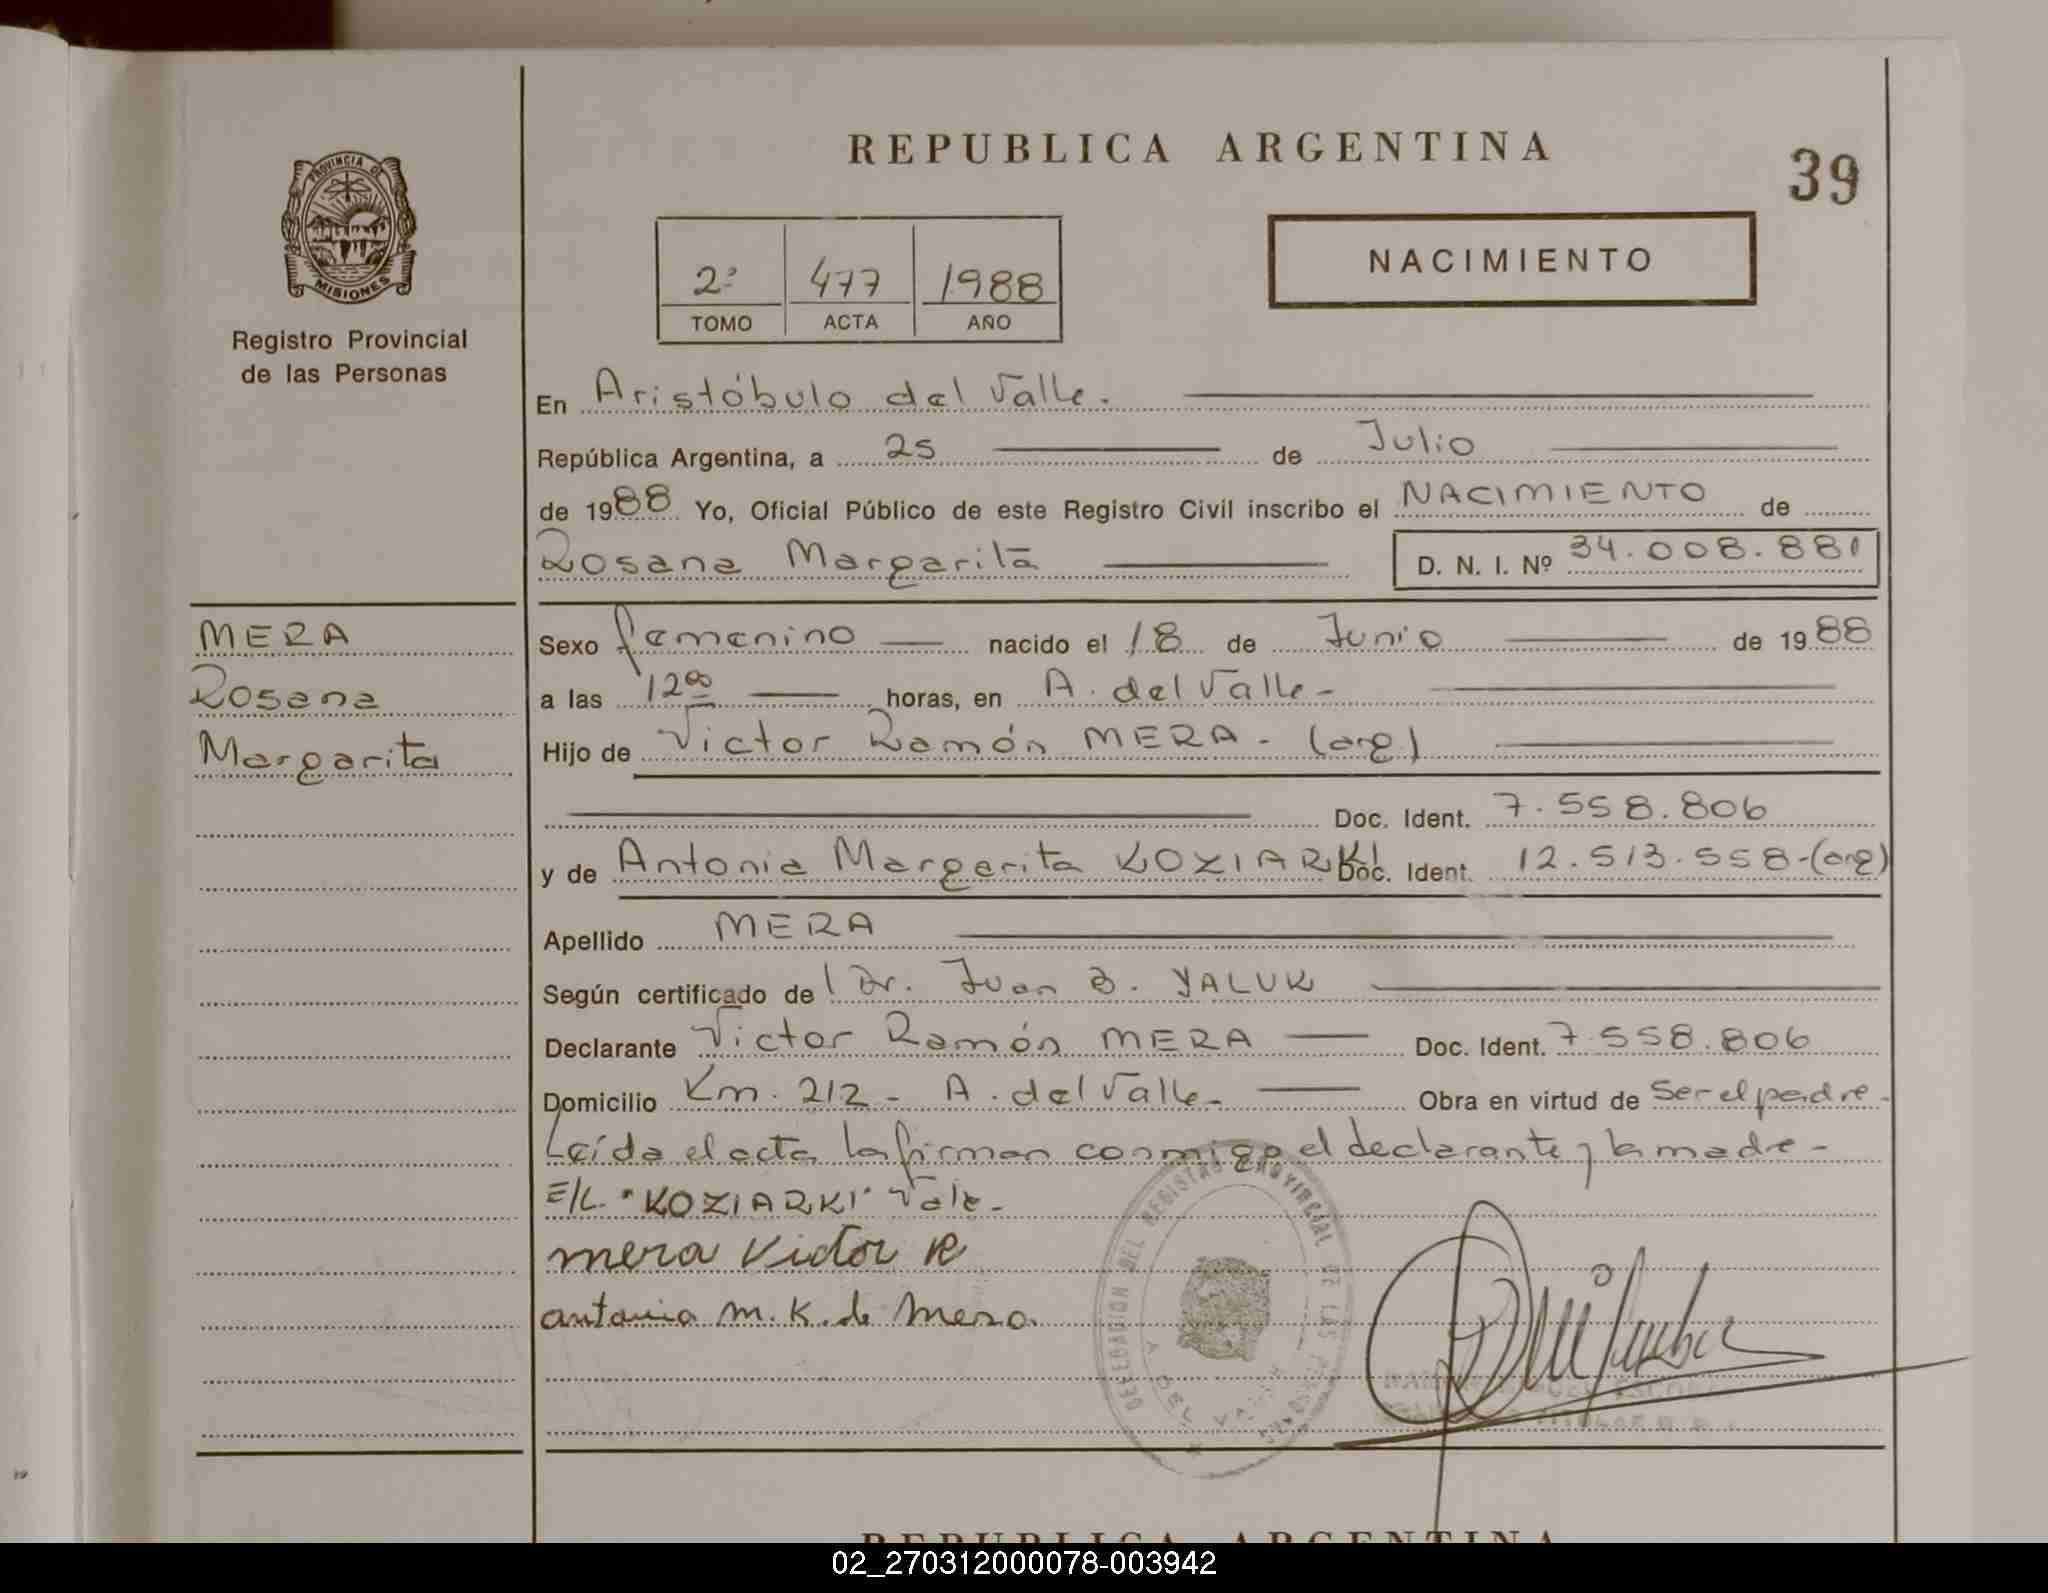 REPUBLICA ARGENTINA
39
PROVINCIA DE
MISIONES
Registro Provincial
de las Personas
2º 477 1988
TOMO ACTA AÑO
NACIMIENTO
En Aristóbulo del Valle.
República Argentina, a 25 de Julio
de 1988 Yo, Oficial Público de este Registro Civil inscribo el NACIMIENTO de
Rosana Margarita D. N. I. Nº 34.008.881
MERA
Rosana
Margarita
Sexo femenino nacido el 18 de Junio de 1988
a las 12 00 horas, en A. del Valle -
Hijo de Victor Ramón MERA - (arg.)
Doc. Ident. 7.558.806
y de Antonia Margarita KOZIARKI Doc. Ident. 12.513.558-(arg)
Apellido MERA
Según certificado de l Dr. Juan B. YALUK
Declarante Victor Ramón MERA Doc. Ident. 7.558.806
Domicilio Km. 212 - A. del Valle - Obra en virtud de Ser el padre -
Leída el acta la firman conmigo el declarante y la madre -
E/L. "KOZIARKI" Vale -
mera Victor R
antonia M. K. de Mera.
DELEGACION DEL REGISTRO PROVINCIAL DE LAS PERSONAS
A. DEL VALLE
REPUBLICA ARGENTINA
02_270312000078-003942